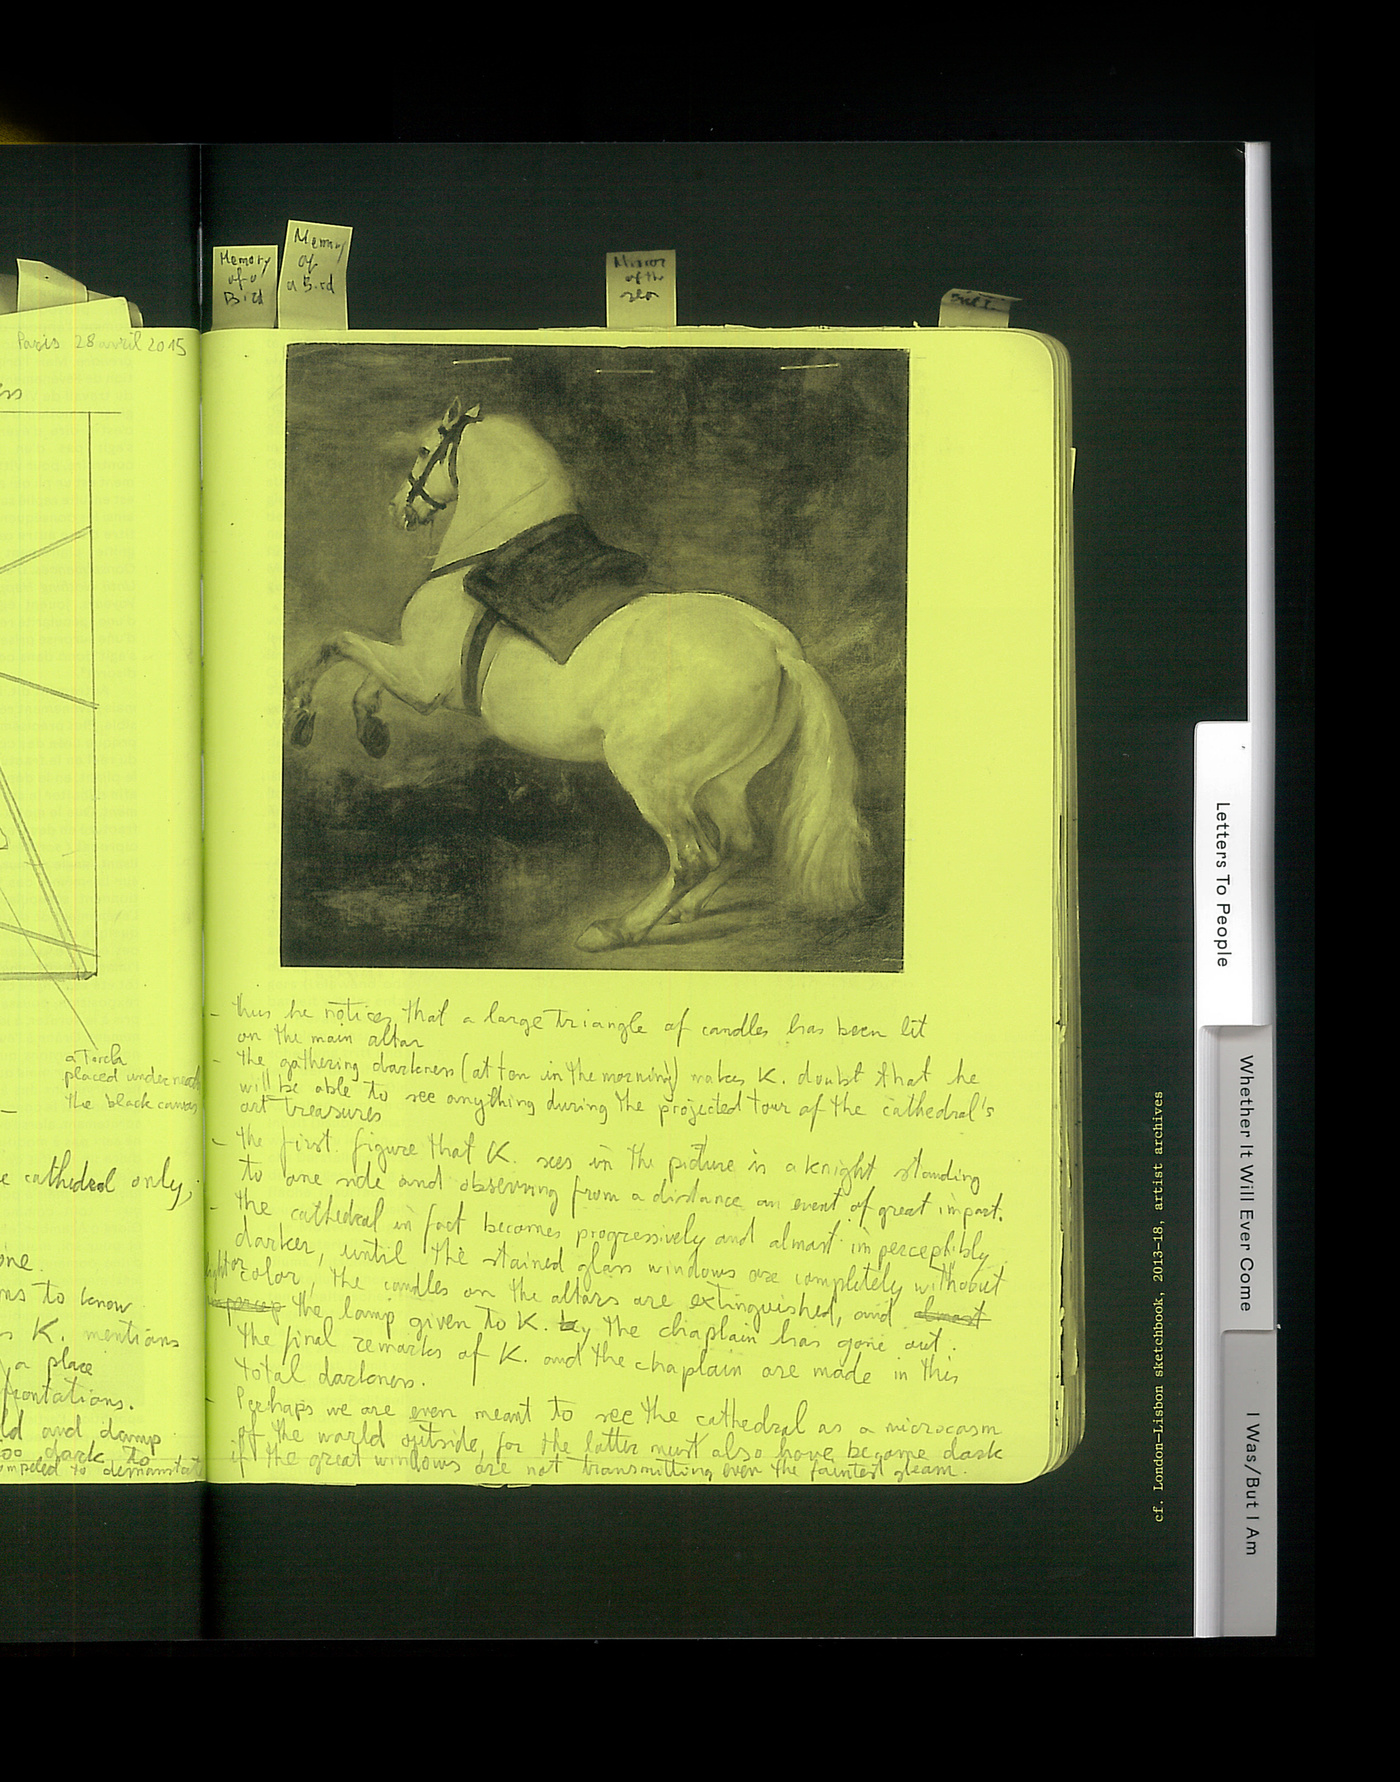 Memory
of a
Bird
Memory
of
a Bird
Mirror
of the
sea
Paris 28 avril 2015
a torch
placed underneath
the black canvas
e cathedral only,
one.
ns to know
s K. mentions
, a place
frontations.
ld and damp
oo dark to
ompeled to demonstrate
- thus he notices that a large triangle of candles has been lit
on the main altar
- the gathering darkness (at ten in the morning) makes K. doubt that he
will be able to see anything during the projected tour of the cathedral's
art treasures
- the first figure that K. sees in the picture is a knight standing
to one side and observing from a distance an event of great import.
- the cathedral in fact becomes progressively and almost imperceptibly
darker, until the stained glass windows are completely without
light or color, the candles on the altars are extinguished, and almost
impercep the lamp given to K. by the chaplain has gone out.
the final remarks of K. and the chaplain are made in this
total darkness.
- Perhaps we are even meant to see the cathedral as a microcosm
of the world outside, for the latter must also have become dark
if the great windows are not transmitting even the faintest gleam.
cf. London–Lisbon sketchbook, 2013–18, artist archives
Letters To People
Whether It Will Ever Come
I Was/But I Am